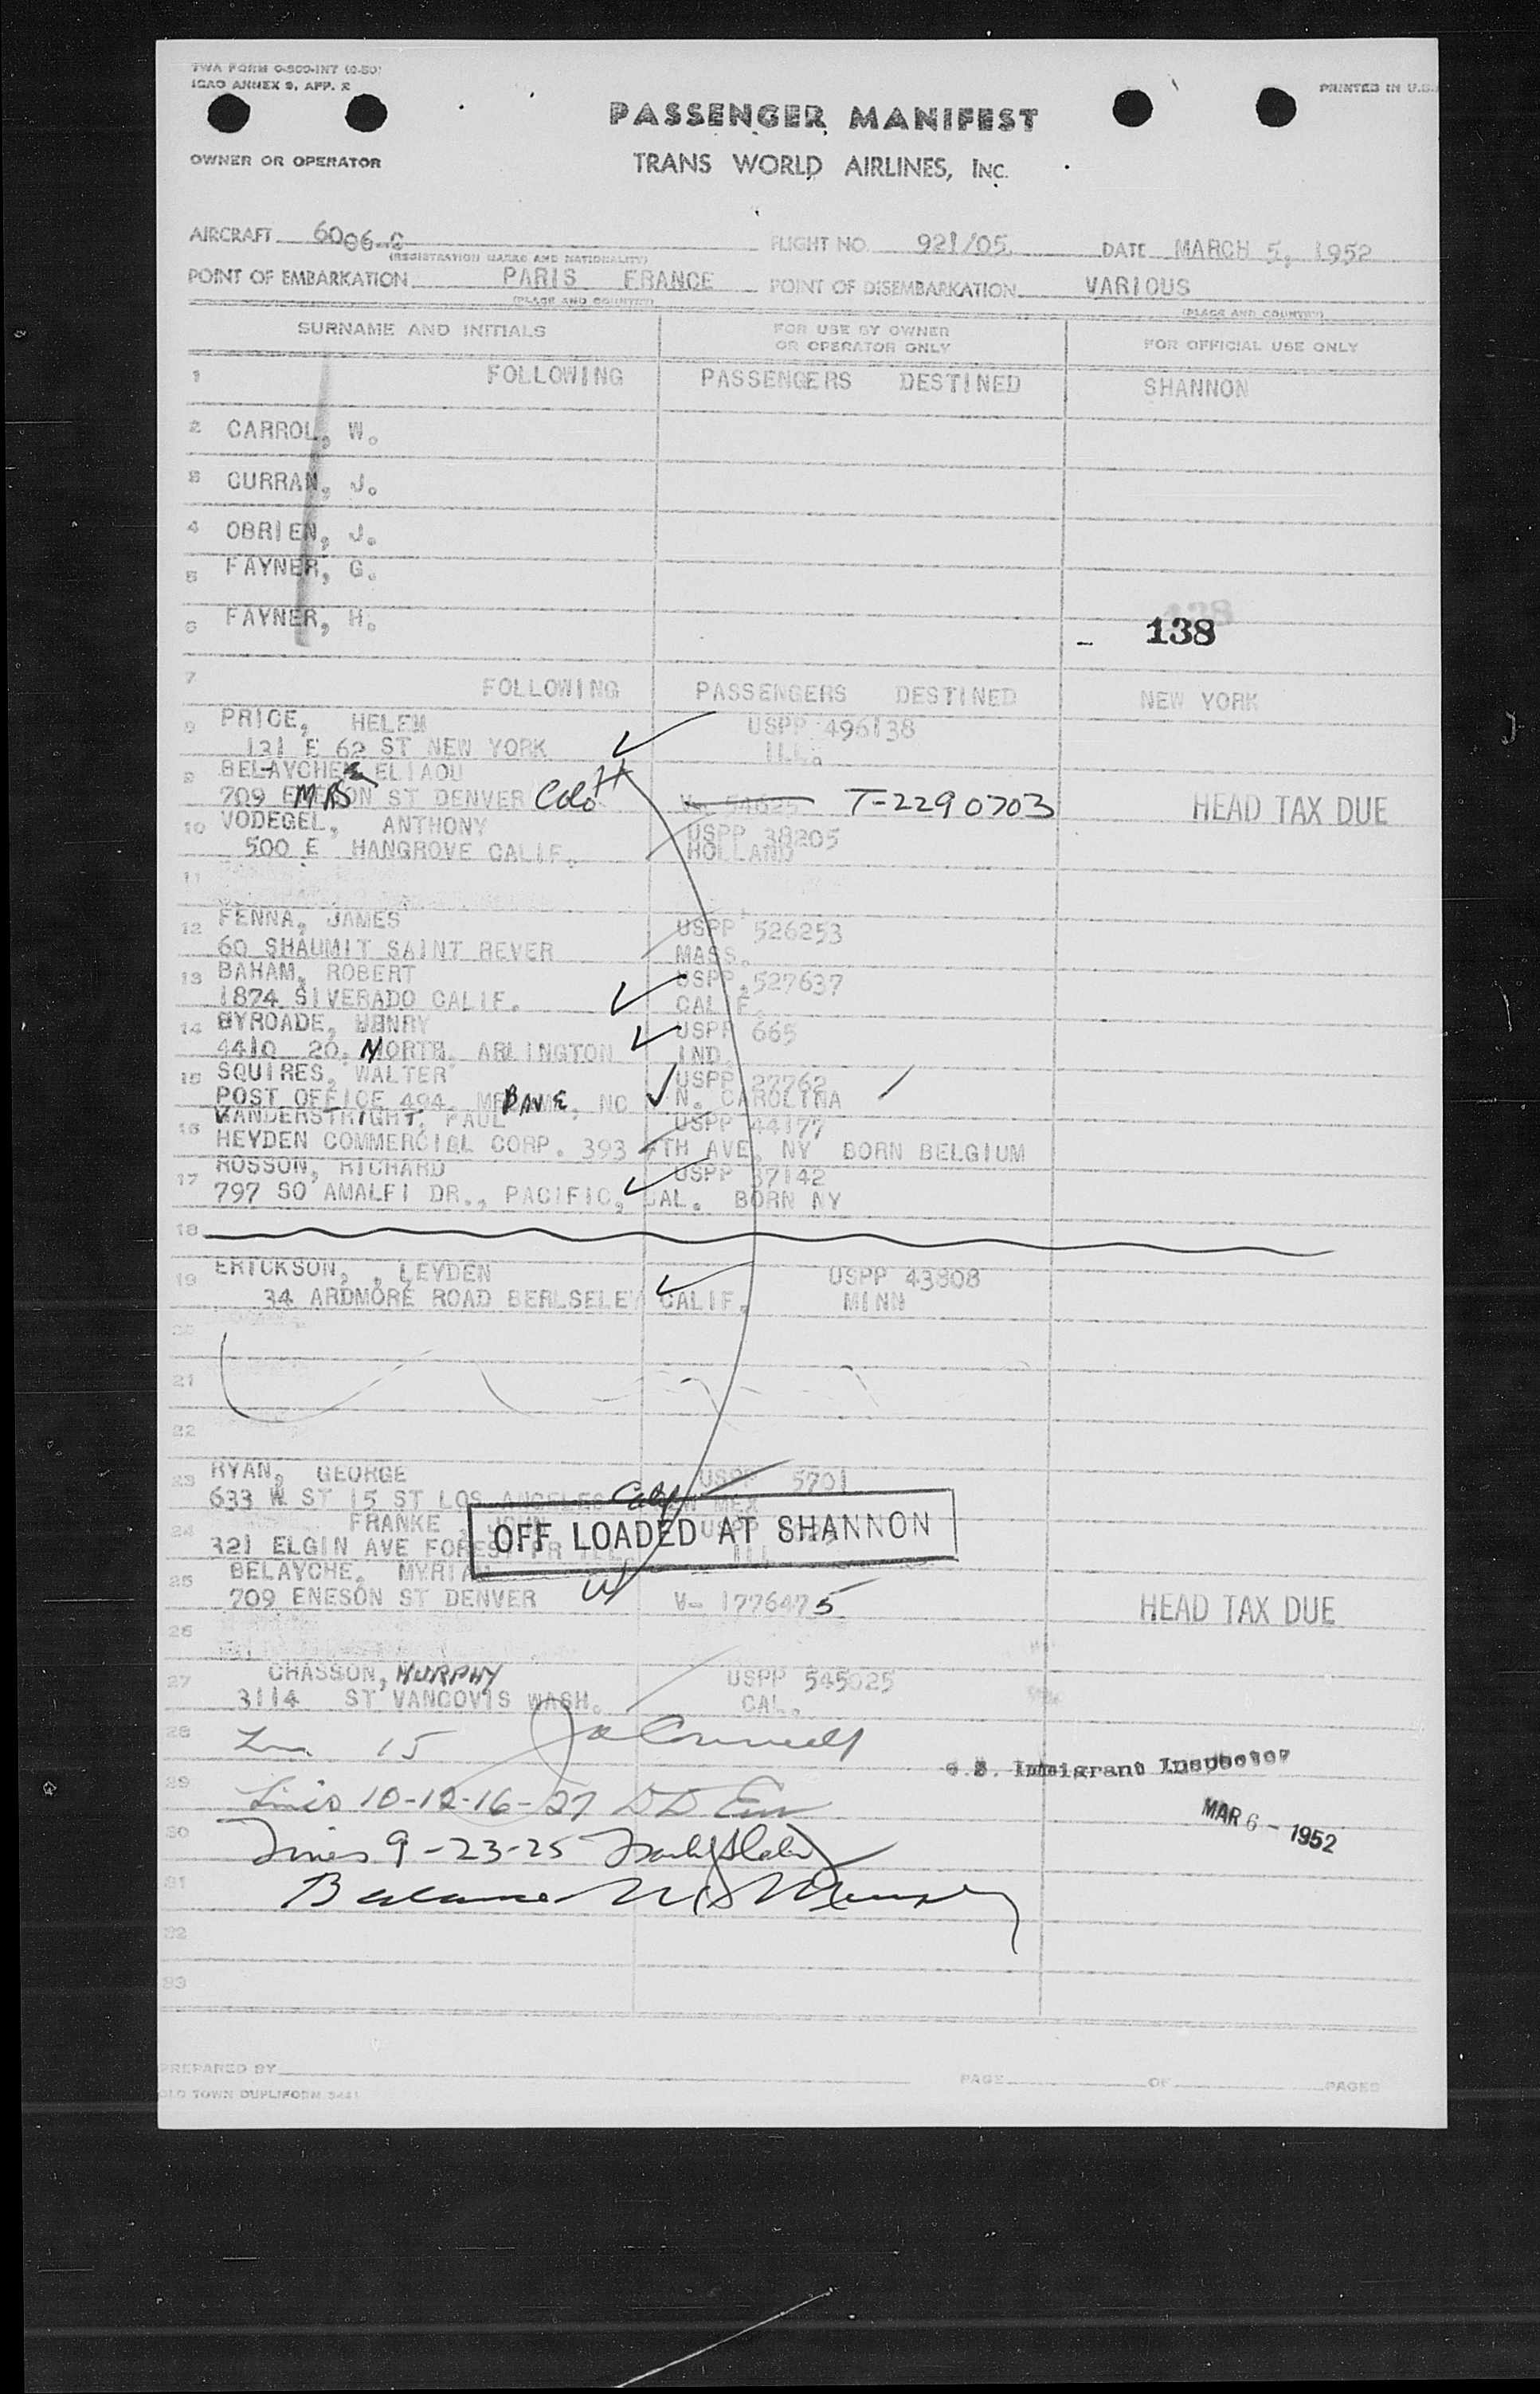 TWA FORM O-800-INT (0-50)
ICAO ANNEX 9, APP. 2
PRINTED IN U.S.
PASSENGER MANIFEST
OWNER OR OPERATOR
TRANS WORLD AIRLINES, INC.
AIRCRAFT 6006-C FLIGHT NO. 921/05 DATE MARCH 5, 1952
(REGISTRATION MARKS AND NATIONALITY)
POINT OF EMBARKATION PARIS FRANCE POINT OF DISEMBARKATION VARIOUS
(PLACE AND COUNTRY) (PLACE AND COUNTRY)
SURNAME AND INITIALS FOR USE BY OWNER OR OPERATOR ONLY FOR OFFICIAL USE ONLY
1 FOLLOWING PASSENGERS DESTINED SHANNON
2 CARROL, W.
3 CURRAN, J.
4 OBRIEN, J.
5 FAYNER, G.
6 FAYNER, H.
138
7 FOLLOWING PASSENGERS DESTINED NEW YORK
8 PRICE, HELEN USPP 496138
131 E 62 ST NEW YORK ILL.
9 BELAYCHE ELIAOU
MRS
709 ENESON ST DENVER Colo V- 54625 T-2290703 HEAD TAX DUE
10 VODEGEL, ANTHONY USPP 38205
500 E HANGROVE CALIF. HOLLAND
11
12 FENNA, JAMES USPP 526253
60 SHAUMIT SAINT REVER MASS.
13 BAHAM, ROBERT USPP 527637
1874 SIVERADO CALIF. CALIF.
14 BYROADE, HENRY USPP 665
4410 20. NORTH. ARLINGTON IND.
15 SQUIRES, WALTER USPP 27762
POST OFFICE 494, BANE, NC N. CAROLINA
16 VANDERSTRIGHT, PAUL USPP 44177
HEYDEN COMMERCIAL CORP. 393 7TH AVE, NY BORN BELGIUM
17 ROSSON, RICHARD USPP 37142
797 SO AMALFI DR., PACIFIC, CAL. BORN NY
18
19 ERICKSON, , LEYDEN USPP 43808
34 ARDMORE ROAD BERLSELEY CALIF. MINN
20
21
22
23 RYAN, GEORGE USPP 5701
633 W ST 15 ST LOS ANGELES Calif NEW MEX
24 FRANKE, JOHN USPP
OFF LOADED AT SHANNON
321 ELGIN AVE FOREST PR ILL. ILL
25 BELAYCHE, MYRIAM
709 ENESON ST DENVER V- 1776475 HEAD TAX DUE
26
27 CHASSON, MURPHY USPP 545025
3114 ST VANCOVIS WASH. CAL.
28 15
U.S. Immigrant Inspector
29 Lines 10-12-16-27
MAR 6 - 1952
30 Lines 9-23-25
31 Balance
32
33
PREPARED BY PAGE OF PAGES
OLD TOWN DUPLIFORM 3441